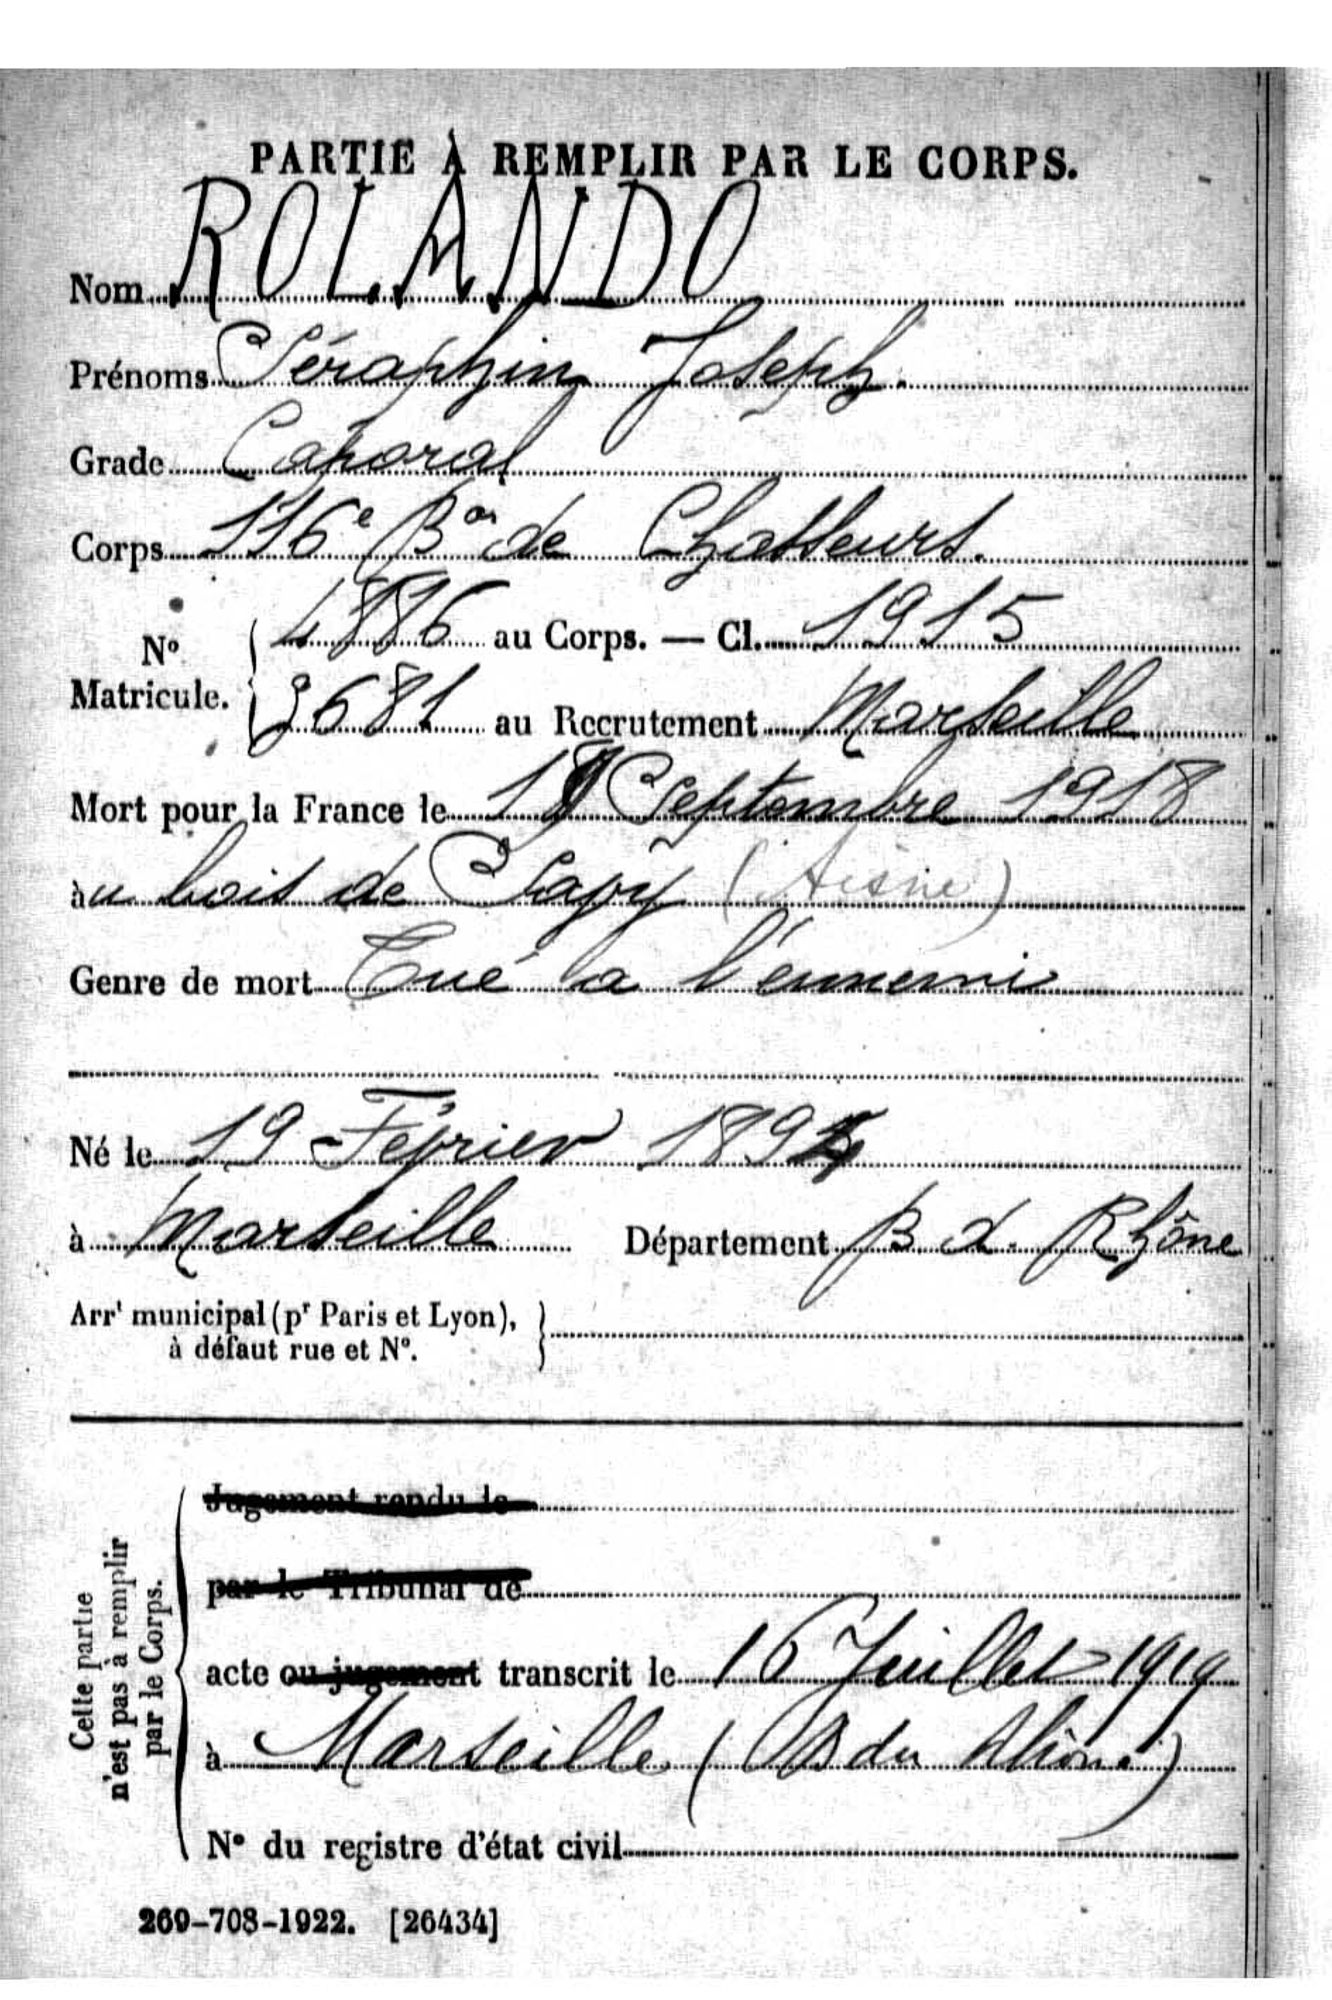 PARTIE À REMPLIR PAR LE CORPS.
Nom ROLANDO
Prénoms Séraphin Joseph.
Grade Caporal
Corps 116e Bon de Chasseurs.
No Matricule. 4886 au Corps. — Cl. 1915
3681 au Recrutement Marseille
Mort pour la France le Septembre 1918
au bois de (Aisne)
Genre de mort Tué a l'ennemi
Né le 19 Février 189
à Marseille Département B d. Rhône
Arrt municipal (pr Paris et Lyon),
à défaut rue et No.
Cette partie
n'est pas à remplir
par le Corps.
Jugement rendu le
par le Tribunal de
acte ou jugement transcrit le 16 Juillet 1919
à Marseille (B du Rhône)
No du registre d'état civil
269-708-1922. [26434]